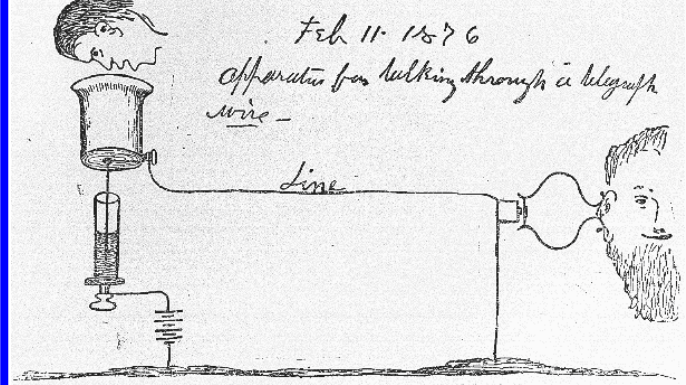 Feb 11. 1876
apparatus for talking through a telegraph
wire -
Line